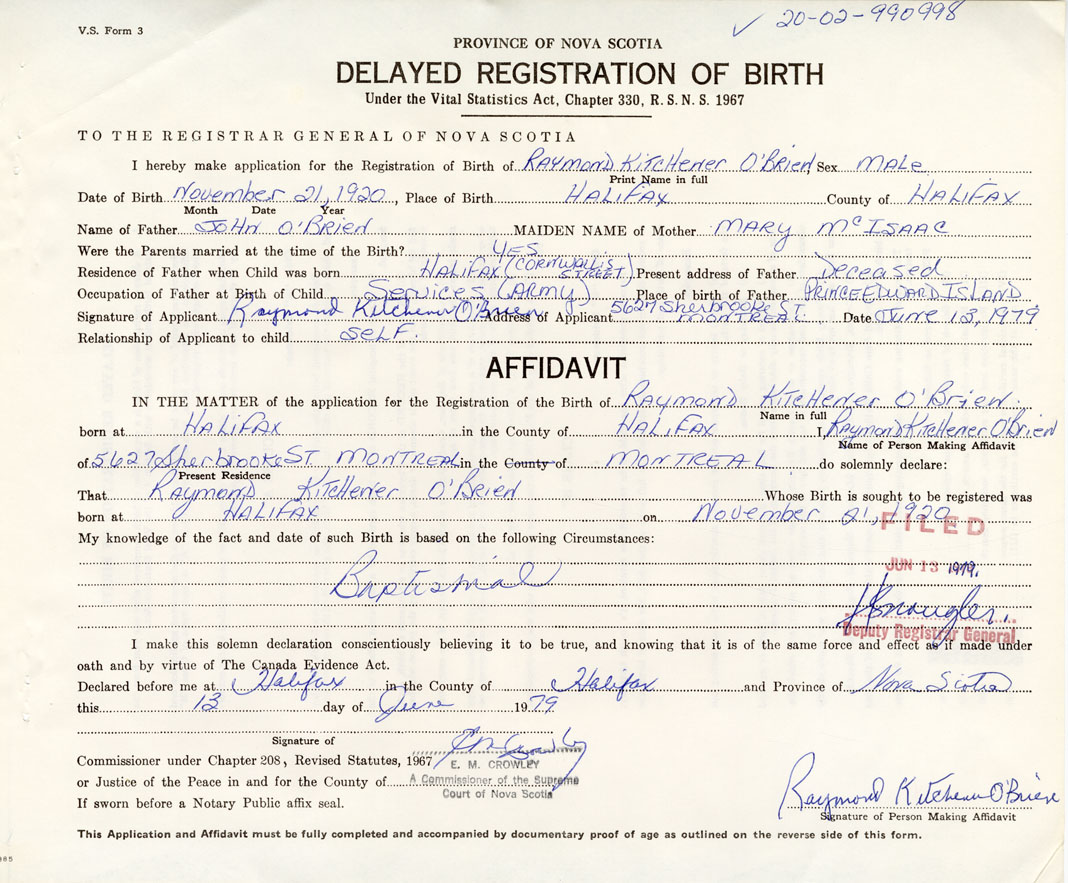 V.S. Form 3
✓ 20-02-990998
PROVINCE OF NOVA SCOTIA
DELAYED REGISTRATION OF BIRTH
Under the Vital Statistics Act, Chapter 330, R.S.N.S. 1967
TO THE REGISTRAR GENERAL OF NOVA SCOTIA
I hereby make application for the Registration of Birth of RAYMOND KITCHENER O'BRIEN, Sex MALE
Print Name in full
Date of Birth November 21, 1920, Place of Birth HALIFAX County of HALIFAX
Month Date Year
Name of Father JOHN O'BRIEN MAIDEN NAME of Mother MARY McISAAC
Were the Parents married at the time of the Birth? YES
Residence of Father when Child was born HALIFAX (CORNWALLIS STREET) Present address of Father Deceased
Occupation of Father at Birth of Child Services (ARMY) Place of birth of Father PRINCE EDWARD ISLAND
Signature of Applicant Raymond Kitchener O'Brien Address of Applicant 5627 Sherbrooke ST. MONTREAL Date June 13, 1979
Relationship of Applicant to child SELF.
AFFIDAVIT
IN THE MATTER of the application for the Registration of the Birth of RAYMOND KITCHENER O'BRIEN.
Name in full
born at HALIFAX in the County of HALIFAX I, RAYMOND KITCHENER O'BRIEN
Name of Person Making Affidavit
of 5627 Sherbrooke ST MONTREAL in the County of MONTREAL do solemnly declare:
Present Residence
That RAYMOND KITCHENER O'BRIEN Whose Birth is sought to be registered was
born at HALIFAX on November 21, 1920
FILED
My knowledge of the fact and date of such Birth is based on the following Circumstances:
JUN 13 1979.
Baptismal
Deputy Registrar General
I make this solemn declaration conscientiously believing it to be true, and knowing that it is of the same force and effect as if made under
oath and by virtue of The Canada Evidence Act.
Declared before me at Halifax in the County of Halifax and Province of Nova Scotia
this 13 day of June 1979
Signature of
Commissioner under Chapter 208, Revised Statutes, 1967 E. M. CROWLEY
or Justice of the Peace in and for the County of A Commissioner of the Supreme
Court of Nova Scotia
If sworn before a Notary Public affix seal.
Raymond Kitchener O'Brien
Signature of Person Making Affidavit
This Application and Affidavit must be fully completed and accompanied by documentary proof of age as outlined on the reverse side of this form.